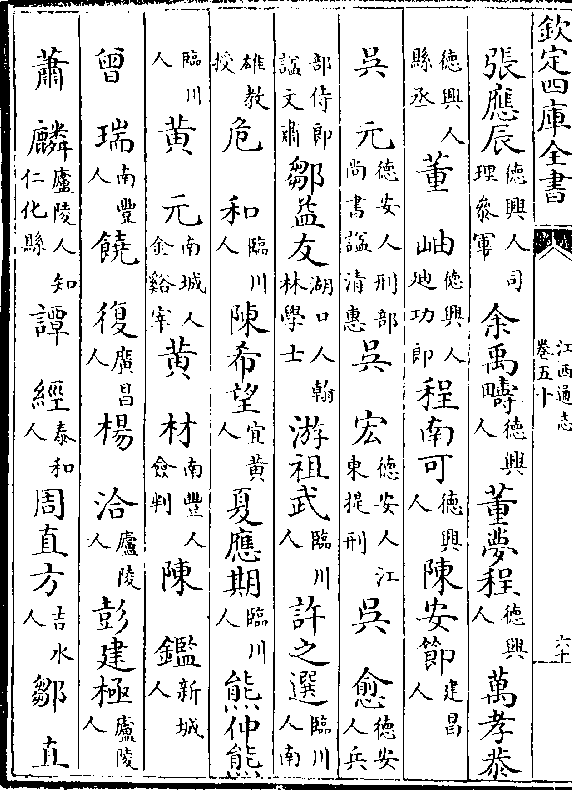 欽定四庫全書 江西通志 卷五十 六十
張應辰 德興人司理參軍 余禹疇 德興人 董夢程 德興人 萬孝恭
德興人縣丞 董岫 德興人迪功郎 程南可 德興人 陳安節 建昌人
吳元 德安人刑部尚書諡清惠 吳宏 德安人江東提刑 吳愈 德安人兵
部侍郎諡文肅 鄒益友 湖口人翰林學士 游祖武 臨川人 許之選 臨川人南
雄教授 危和 臨川人 陳希望 宜黃人 夏應期 臨川人 熊仲熊
臨川人 黃元 南城人金谿宰 黃材 南豐人僉判 陳鑑 新城人
曾瑞 南豐人 饒復 廣昌人 楊洽 廬陵人 彭建極 廬陵人
蕭麟 廬陵人知仁化縣 譚經 泰和人 周直方 吉水人 鄒直